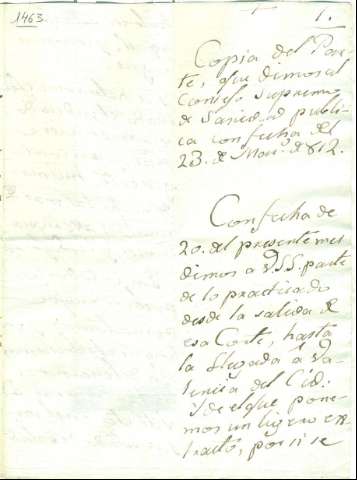 1463.
1.
Copia del Par-
te, que dimos al
Consejo Supremo
de Sanidad publi-
ca con fecha del
23. de Mar.º de 812.
Con fecha de
20. del presente mes
dimos a VSS. parte
de lo practicado
desde la salida de
esa Corte, hasta
la llegada a Va-
lencia del Cid:
y de el que pone-
mos un ligero ex-
tracto, por si se